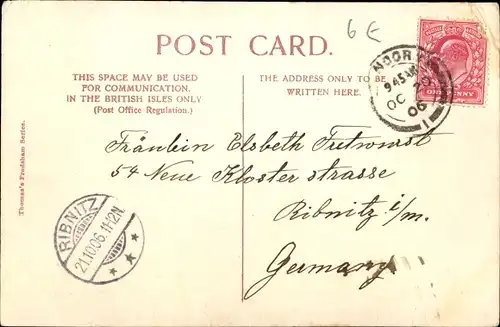 6 E
POST CARD.
THIS SPACE MAY BE USED
FOR COMMUNICATION.
IN THE BRITISH ISLES ONLY
(Post Office Regulation.)
THE ADDRESS ONLY TO BE
WRITTEN HERE.
9 45 AM
OC 20
06
1
ONE PENNY
Fräulein Elsbeth Tretwurst
54 Neue Kloster strasse
Ribnitz i/m.
Germany
RIBNITZ
21.10.06.11-12N
Thomas's Frodsham Series.